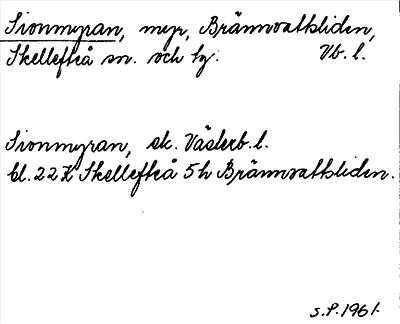 Sionmyran, myr, Brännvattsliden,
Skellefteå sn. och lg. Vb. l.
Sionmyran, ek. Västerb. l.
bl. 22 K Skellefteå 5 h Brännvattsliden.
S.P. 1961.